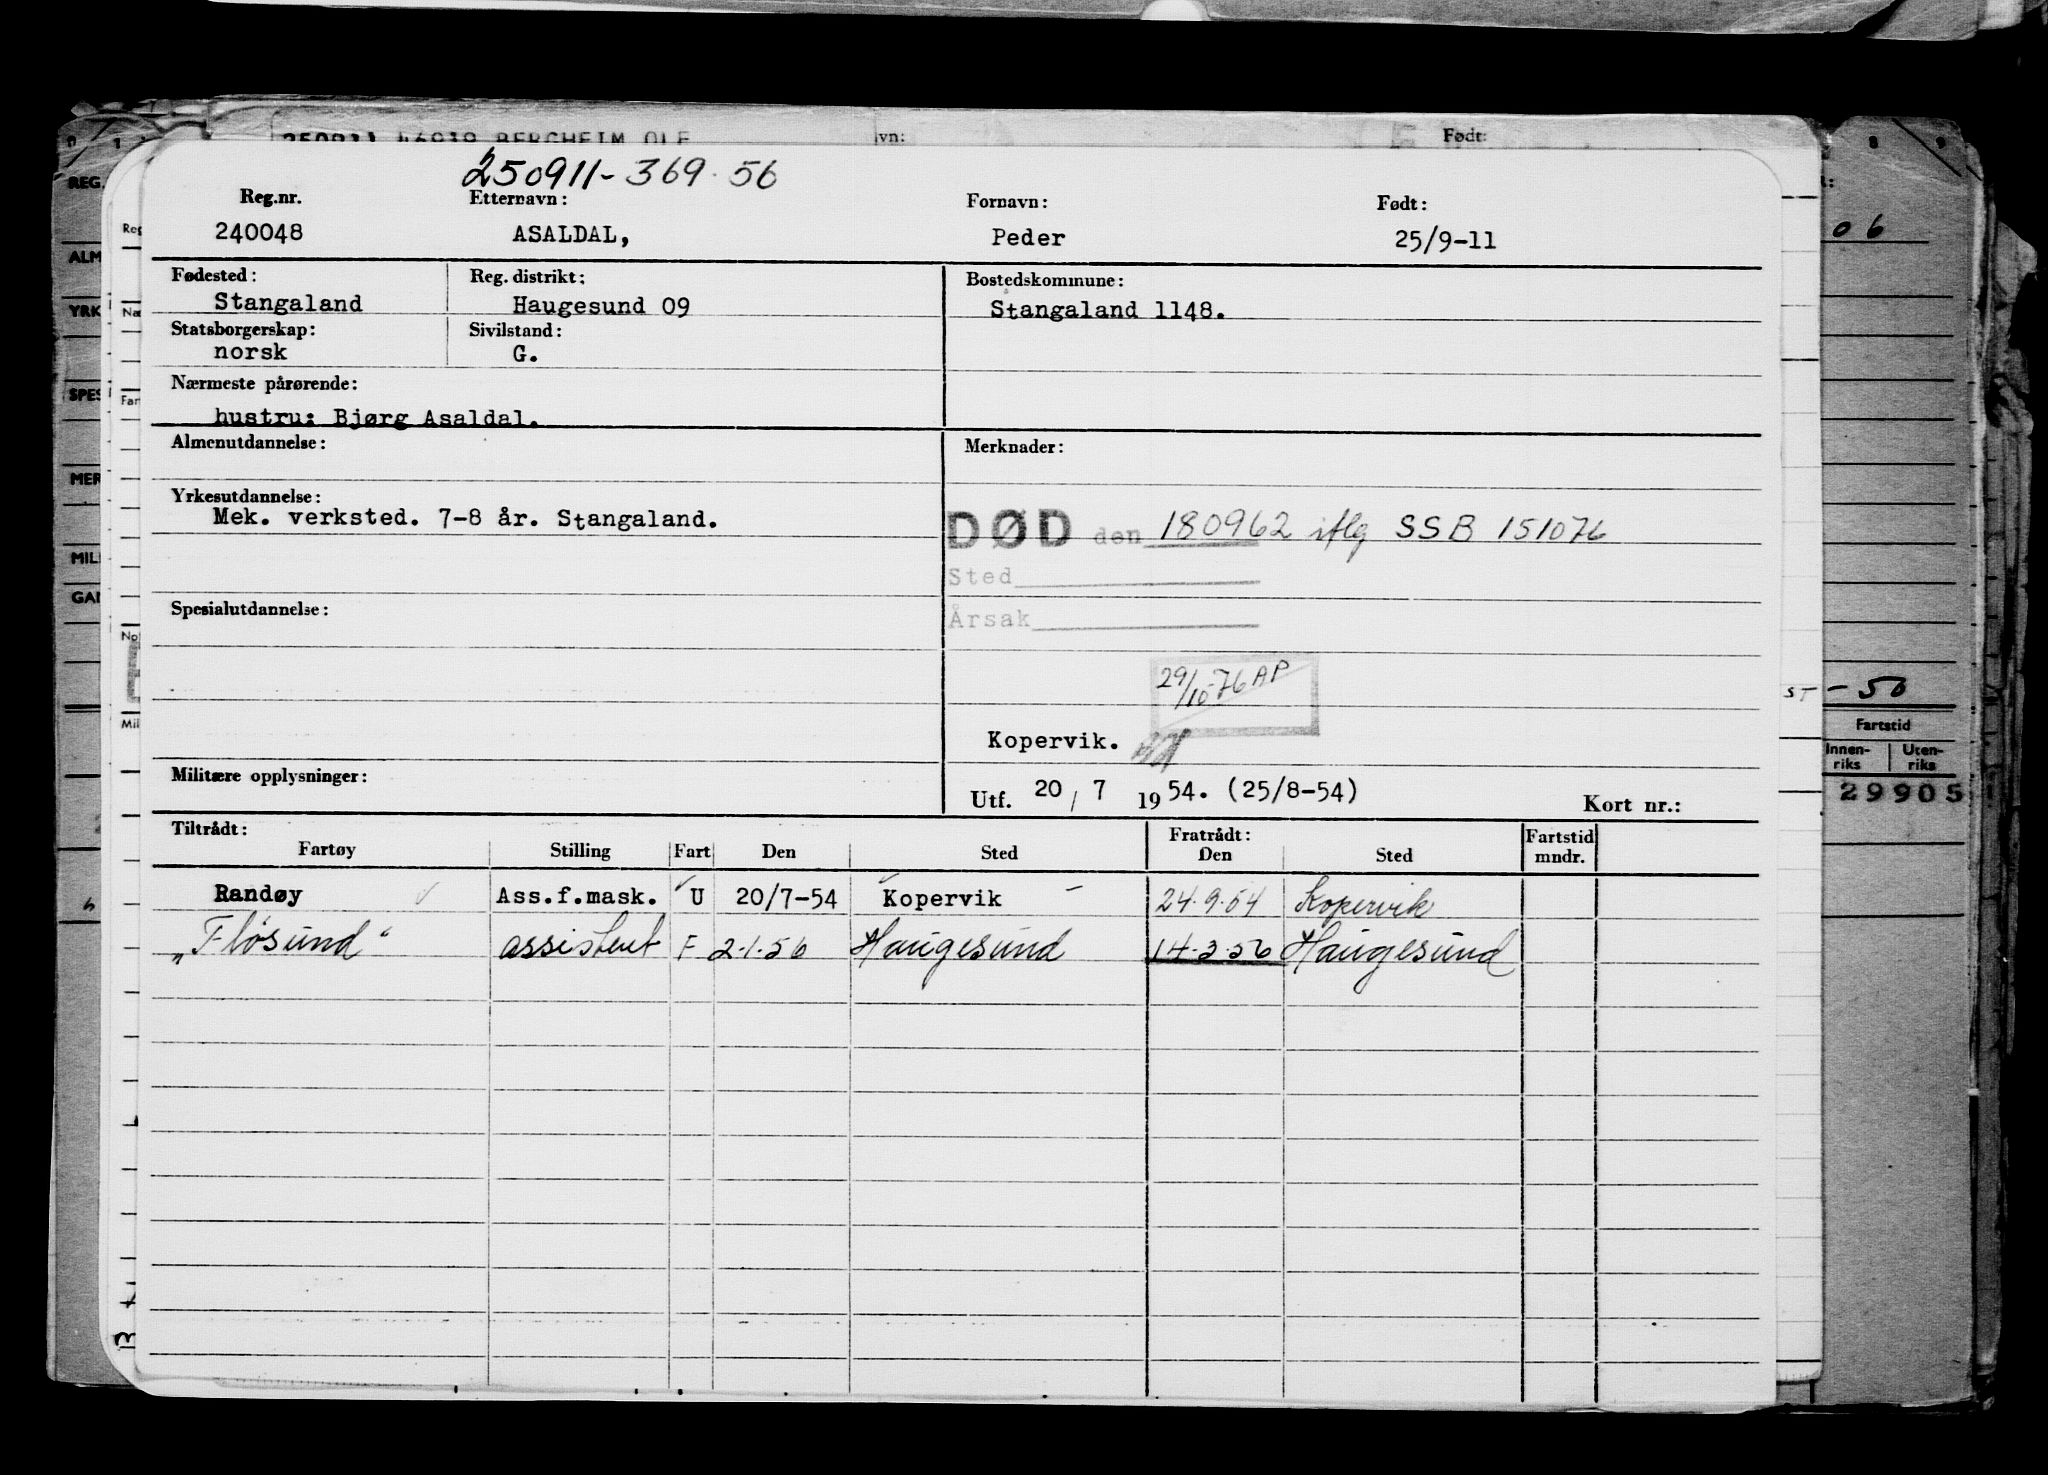 250911 46939 BERGHEIM OLE
vn:
Født:
250911-369.56
Reg.nr. Etternavn: Fornavn: Født:
240048 ASALDAL, Peder 25/9-11
Fødested: Reg. distrikt: Bostedskommune:
Stangaland Haugesund 09 Stangaland 1148.
Statsborgerskap: Sivilstand:
norsk G.
Nærmeste pårørende:
hustru: Bjørg Asaldal.
Almenutdannelse: Merknader:
Yrkesutdannelse:
Mek. verksted. 7-8 år. Stangaland.
DØD den 180962 iflg SSB 151076
Sted
Årsak
Spesialutdannelse:
29/10-76 AP
Kopervik.
Militære opplysninger:
Utf. 20/7 1954. (25/8-54) Kort nr.:
Tiltrådt: Fratrådt: Fartstid
Fartøy Stilling Fart Den Sted Den Sted mndr.
Randøy Ass.f.mask. U 20/7-54 Kopervik - 24.9.54 Kopervik
"Fløsund" assistent F 2.1.56 Haugesund 14.3.56 Haugesund
REG.
ALM
YRK
SPES
MER
MILI
GAN
06
ST - 50
Fartstid
Innen-riks Uten-riks
29905